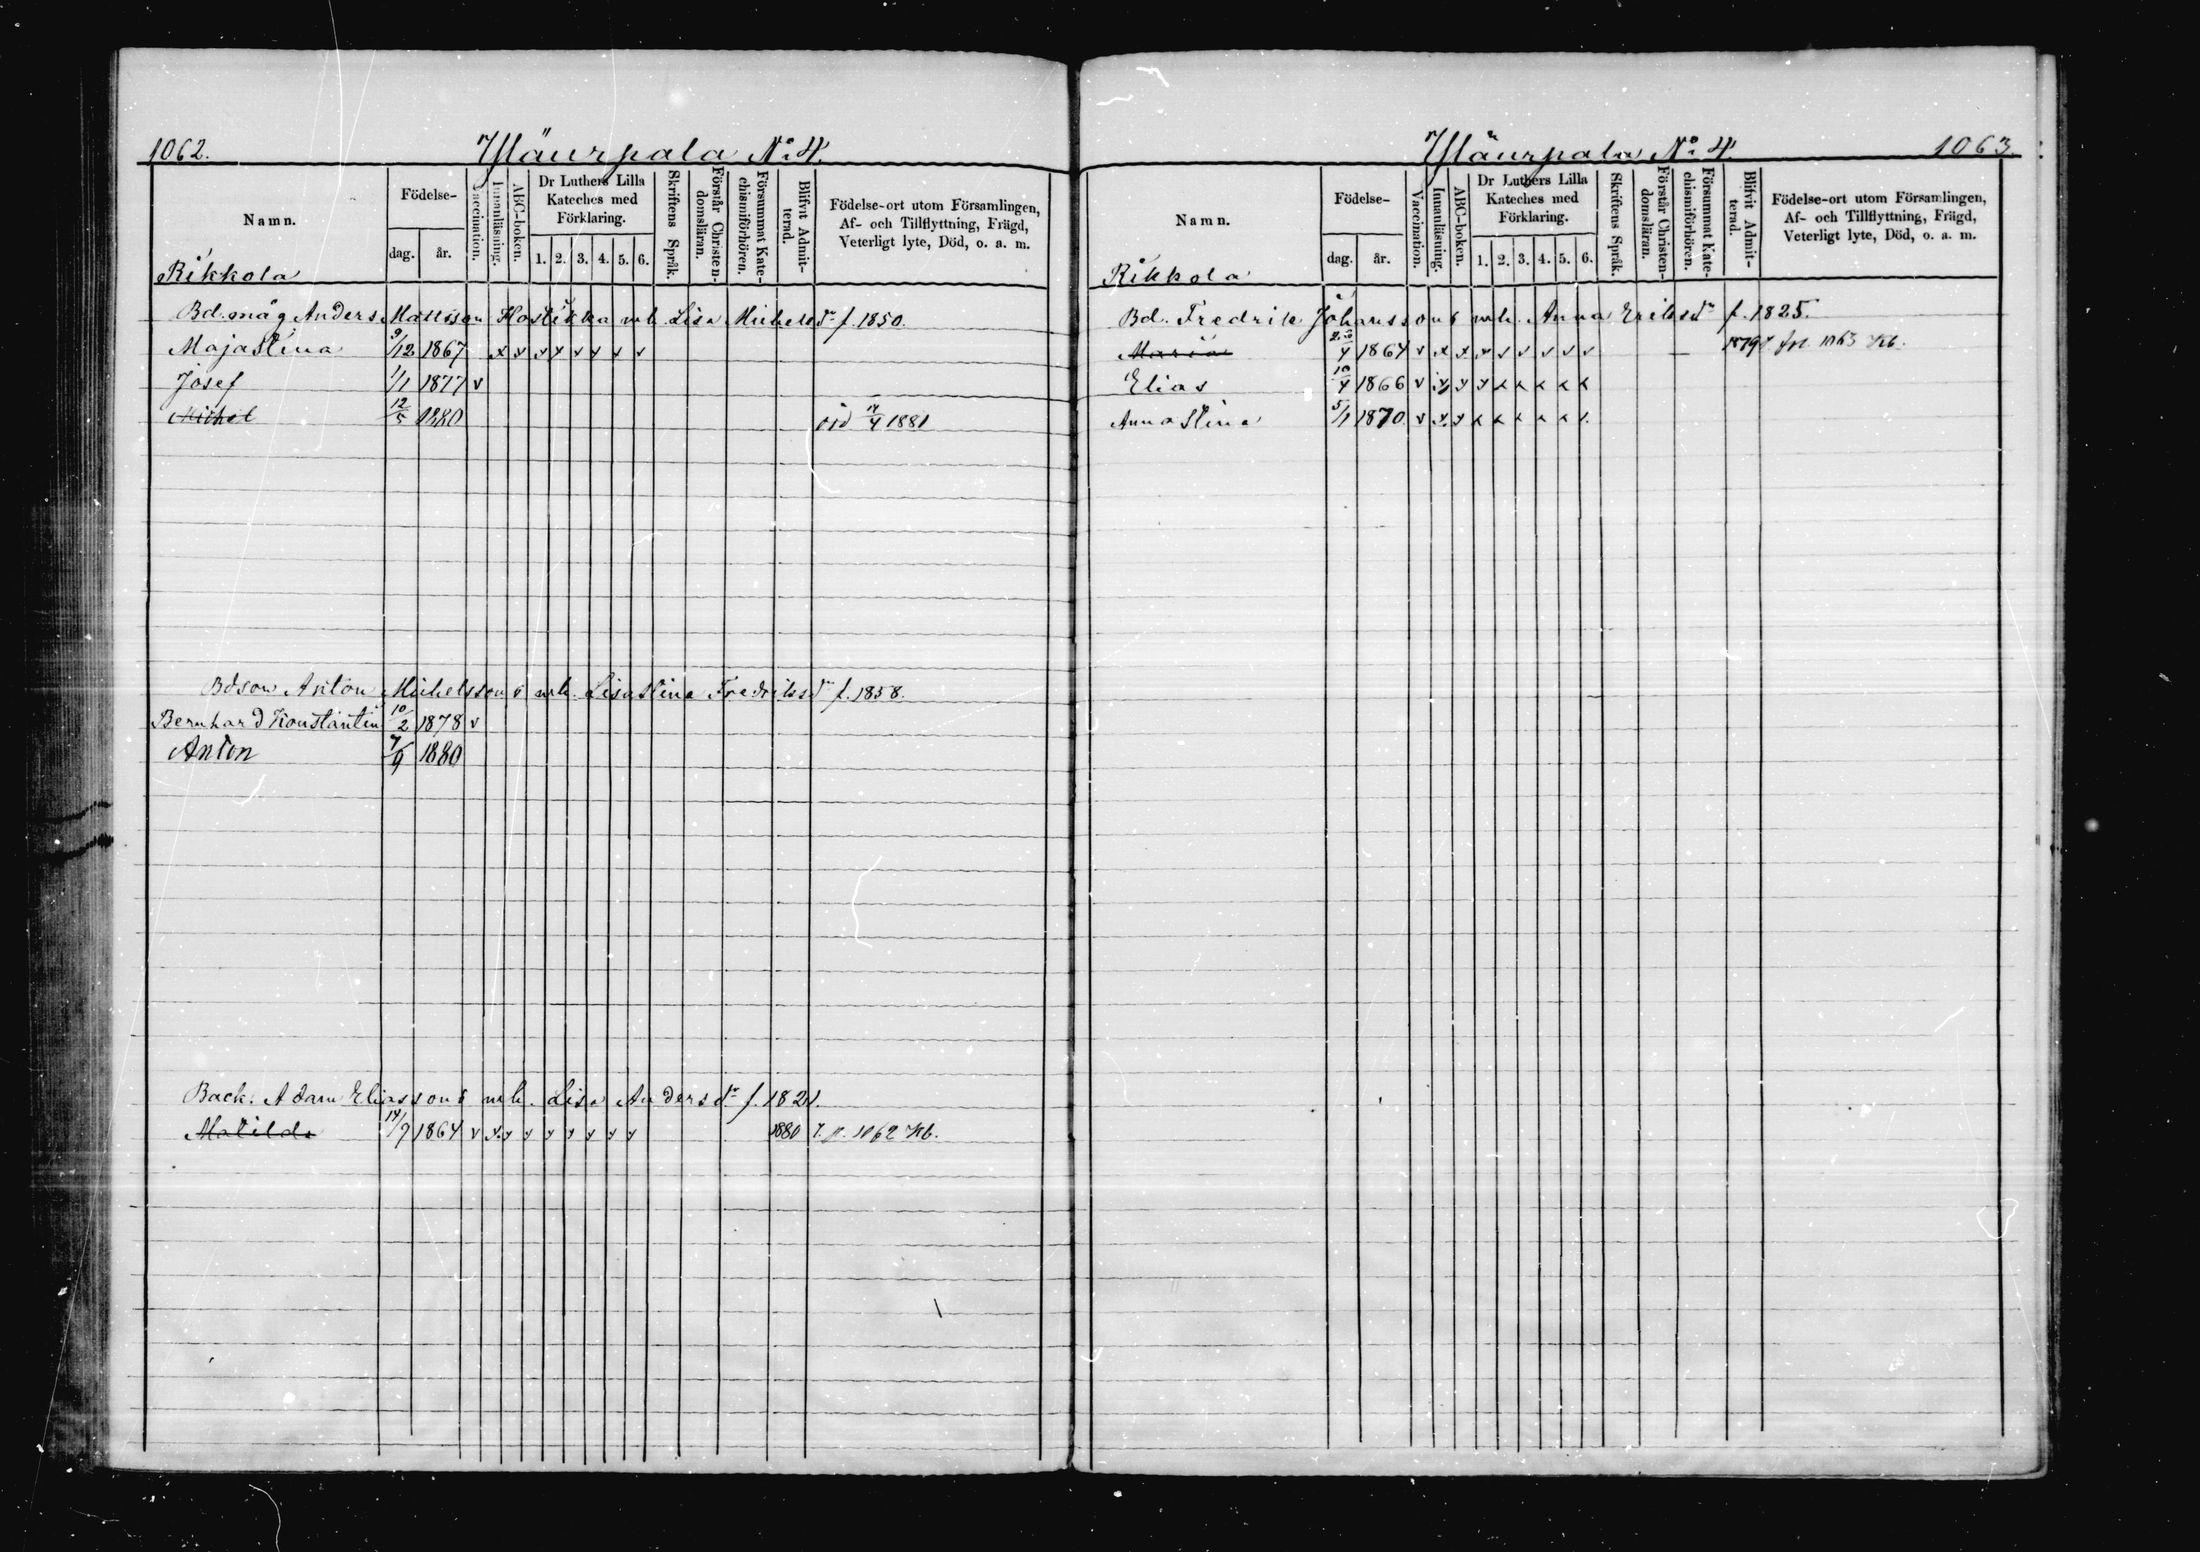 1062.
Yläurpala No 4.
Namn.
Födelse-
dag.
år.
Vaccination.
Innanläsning.
ABC-boken.
Dr Luthers Lilla
Kateches med
Förklaring.
1. 2. 3. 4. 5. 6.
Skriftens Språk.
Förstår Christen-
domsläran.
Försummat Kate-
chismiförhören.
Blifvit Admit-
terad.
Födelse-ort utom Församlingen,
Af- och Tillflyttning, Frägd,
Veterligt lyte, Död, o. a. m.
Rikkola
Bd. måg Anders Mattsson Hostikka mh Lisa Michelsdr f. 1850.
Majastina 9/12 1867 x v v v v v v v
Josef 1/1 1877 v
Michel 12/5 1880 död 14/4 1881
Bdson Anton Michelssons mh. Lisastina Fredriksdr f. 1858.
Bernhard Konstantin 10/2 1878 v
Anton 7/9 1880
Back. Adam Eliassons mh. Lisa Andersdr f. 1821.
Matilda 14/7 1864 v x v v v v v v v 1880 7. p. 1062 Kb.
Yläurpala No 4.
1063.
Namn.
Födelse-
dag.
år.
Vaccination.
Innanläsning.
ABC-boken.
Dr Luthers Lilla
Kateches med
Förklaring.
1. 2. 3. 4. 5. 6.
Skriftens Språk.
Förstår Christen-
domsläran.
Försummat Kate-
chismiförhören.
Blifvit Admit-
terad.
Födelse-ort utom Församlingen,
Af- och Tillflyttning, Frägd,
Veterligt lyte, Död, o. a. m.
Rikkola
Bd. Fredrik Johanssons mh. Anna Eriksdr f. 1825.
Maria 1864 v x x v v v v v v 1879 1063 Kb.
Elias 10/4 1866 v v v v x x x x x
Annastina 5/1 1870. v v v x x x x x x